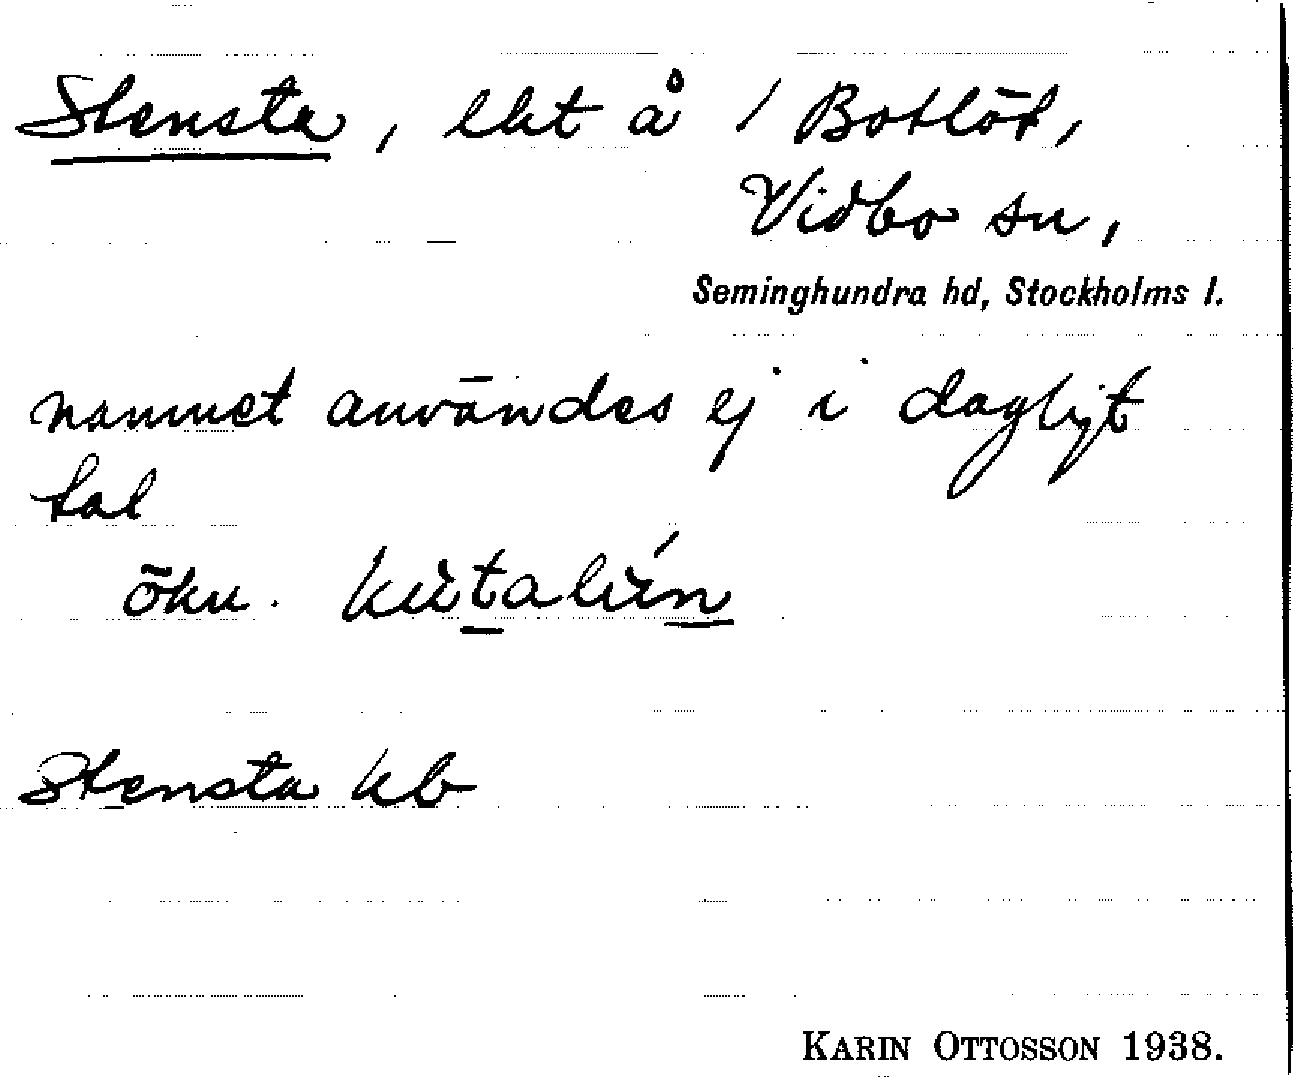 Stensta, lht å 1 Botlöt,
Vidbo sn,
Seminghundra hd, Stockholms l.
namnet användes ej i dagligt
tal
ökn.
Stensta kb
KARIN OTTOSSON 1938.